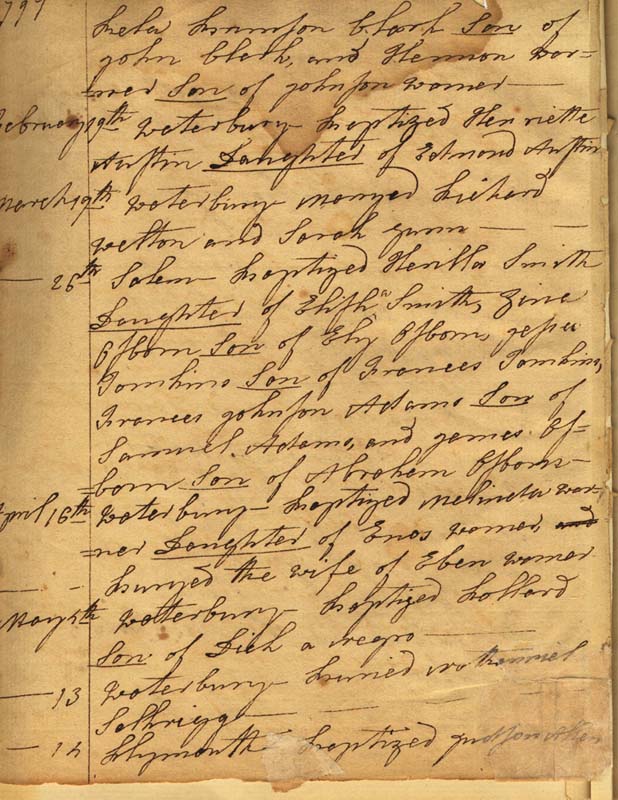 1797
Bela Bramson Clark Son of
John Clark, and Hermon War=
=ner Son of Johnson Warner
February 19th Waterbury baptized Henriette
Austin Daughter of Edmond Austin
March 19th Waterbury marryed Richard
Welton and Sarah Gunn
— 26th Salem baptized Herilla Smith
Daughter of Elisha Smith, Zina
Osborn Son of Ely Osborn, Jesse
Tomkins Son of Frances Tomkins,
Frances Johnson Adams Son of
Samuel Adams, and James Os=
=born Son of Abraham Osborn
April 16th Waterbury baptized Melineta War=
=ner Daughter of Enos Warner, and
buryed the wife of Eben Warner
May 5th Waterbury baptized Pollard
Son of Dick a negro
— 13 Waterbury buried Nathaniel
Selkrigg
— 14 Plymouth baptized Judson Allen